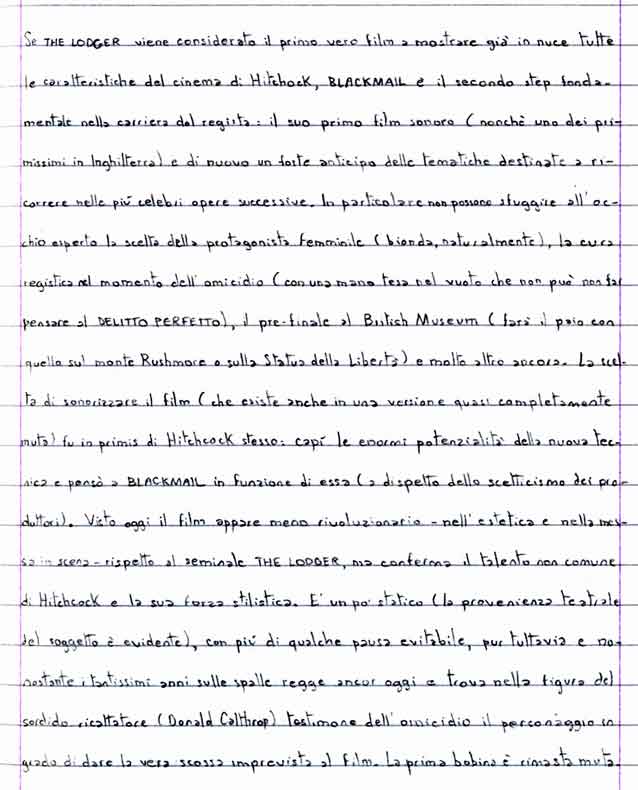 Se THE LODGER viene considerato il primo vero film a mostrare già in nuce tutte
le caratteristiche del cinema di Hitchock, BLACKMAIL è il secondo step fonda-
mentale nella carriera del regista: il suo primo film sonoro (nonchè uno dei pri-
missimi in Inghilterra) e di nuovo un forte anticipo delle tematiche destinate a ri-
correre nelle più celebri opere successive. In particolare non possono sfuggire all'oc-
chio esperto la scelta della protagonista femminile (bionda, naturalmente), la cura
registica nel momento dell'omicidio (con una mano tesa nel vuoto che non può non far
pensare al DELITTO PERFETTO), il pre-finale al British Museum (farà il paio con
quello sul monte Rushmore o sulla Statua della Libertà) e molto altro ancora. La scel-
ta di sonorizzare il film (che esiste anche in una versione quasi completamente
muta) fu in primis di Hitchcock stesso: capì le enormi potenzialità della nuova tec-
nica e pensò a BLACKMAIL in funzione di essa (a dispetto dello scetticismo dei pro-
duttori). Visto oggi il film appare meno rivoluzionario - nell'estetica e nella mes-
sa in scena - rispetto al seminale THE LODGER, ma conferma il talento non comune
di Hitchcock e la sua forza stilistica. E' un po' statico (la provenienza teatrale
del soggetto è evidente), con più di qualche pausa evitabile, pur tuttavia e no-
nostante i tantissimi anni sulle spalle regge ancor oggi e trova nella figura del
sordido ricattatore (Donald Calthrop) testimone dell'omicidio il personaggio in
grado di dare la vera scossa imprevista al film. La prima bobina è rimasta muta.